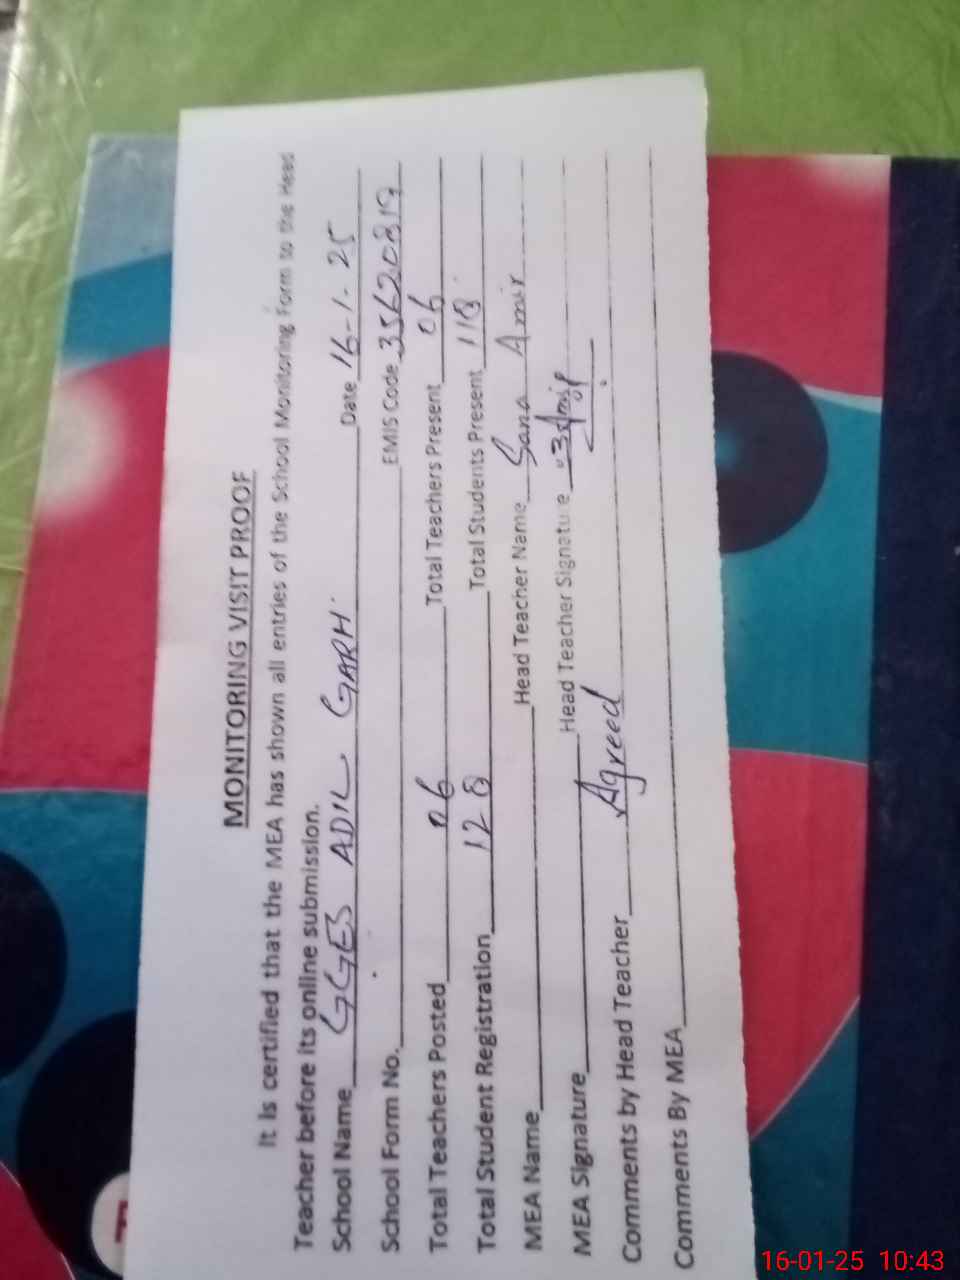 MONITORING VISIT PROOF
It Is certified that the MEA has shown all entries of the School Monitoring Form to the Head
Teacher before its online submission.
School Name GGES ADIL GARH Date 16-1-25
School Form No. EMIS Code 35620819
Total Teachers Posted 06 Total Teachers Present 06
Total Student Registration 128 Total Students Present 118
MEA Name Head Teacher Name Sana Amir
MEA Signature Head Teacher Signature
Comments by Head Teacher Agreed
Comments By MEA
16-01-25 10:43